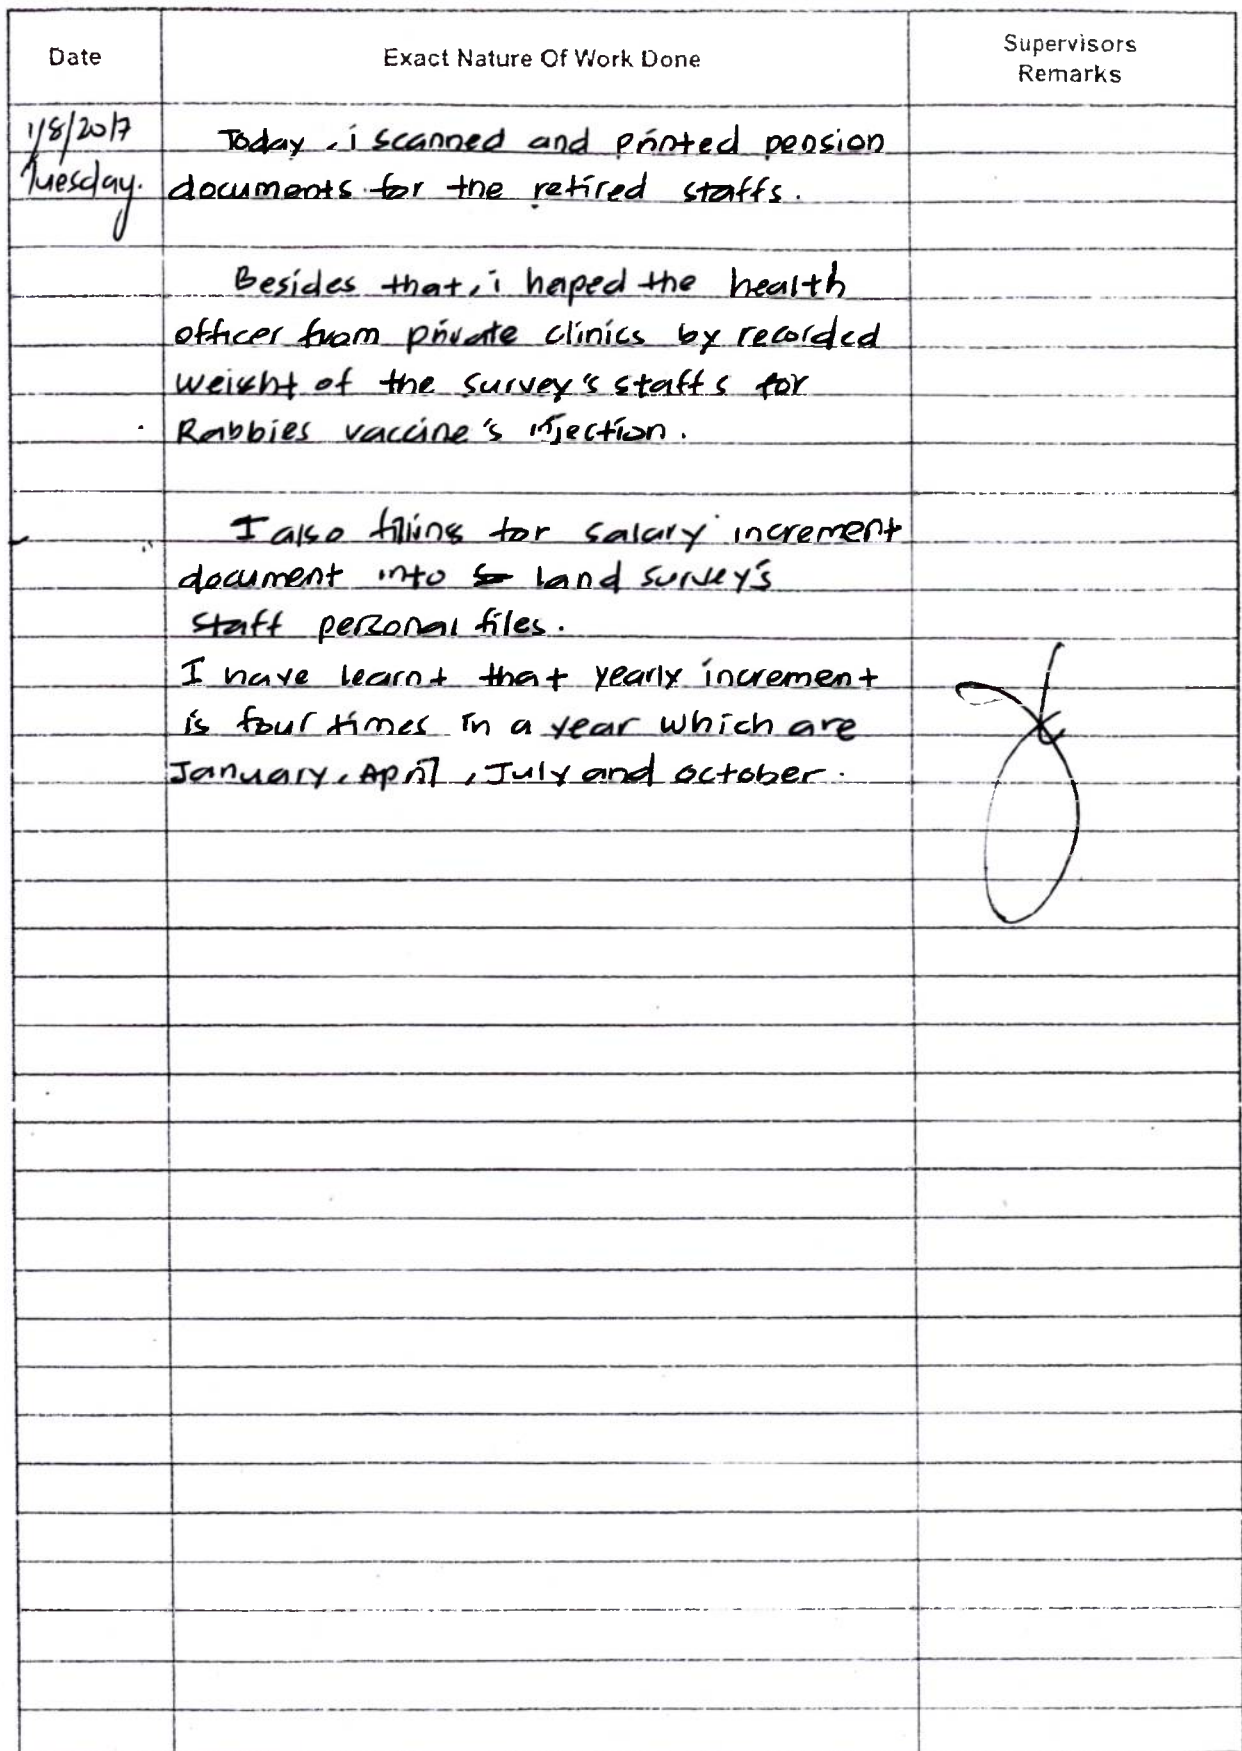 Date
Exact Nature Of Work Done
Supervisors
Remarks
1/8/2017
Tuesday.
Today, i scanned and printed pension
documents for the retired staffs.
Besides that, i heped the health
officer from private clinics by recorded
weight of the survey's staffs for
Rabbies vaccine's injection.
I also filing for salary increment
document into land survey's
staff personal files.
I have learnt that yearly increment
is four times in a year which are
January, April, July and october.